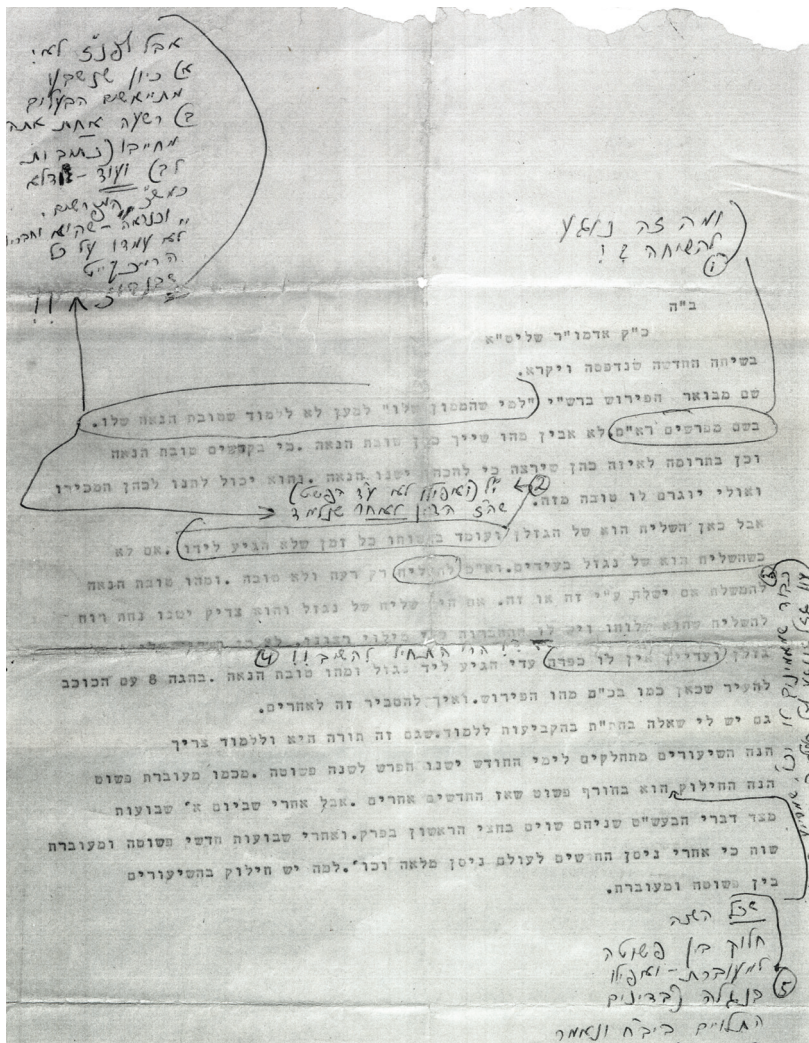 אבל לפנ"ז לא!
א) כיון שנשבע
מתיישים הבעלים
ב) רשעה אחת אתה
מחייבו (כתובות
לב) ועוד - דלא
כמש"כ המפרשים.
וכנראה - שהוא וחבריו
לא עמדו על כל
ומה זה נוגע
להשיחה ?!
①
ב"ה
כ"ק אדמו"ר שליט"א
בשיחה החדשה שנדפסה ויקרא.
שם מבואר הפירוש ברש"י "למי שהממון שלו" למען לא ללמוד שטובת הנאה שלו.
בשם מפרשים רא"ם. לא אבין מהו שייך כאן טובת הנאה .כי בקדשים טובת הנאה
וכן בתרומה לאיזה כהן שירצה כי להכהן ישנו הנאה .והוא יכול לתנו לכהן המכירו
② י"ל (ואפילו לא ע"ד הפשט)
ואולי יוגרם לו טובה מזה.
שה"ז הדין לאחר שנלמד
אבל כאן השליח הוא של הגזלן ועומד ברשותו כל זמן שלא הגיע לידו .אם לא
כשהשליח הוא של נגזל בעידים.וא"כ להשליח רק רעה ולא טובה .ומהו טובת הנאה
③
להמשלח אם ישלח ע"י זה או זה. אם הי' שליח של נגזל והוא צדיק ישנו נחת רוח
להשליח שהוא שלוחו ויש לו התחברות
④ ?! הרי התחיל להשיב !!
גזלן ועדיין אין לו כפרה עדי הגיע ליד נגזל ומהו טובת הנאה .בהגה 8 עם הכוכב
להעיר שכאן כמו בכ"מ מהו הפירוש.ואיך להסביר זה לאחרים.
גם יש לי שאלה בהת"ת בהקביעות ללמוד.שגם זה תורה היא וללמוד צריך
הנה השיעורים מתחלקים לימי החודש ישנו הפרש לשנה פשוטה .מכמו מעוברת פשוט
הנה החילוק הוא בחורף פשוט שאז החדשים אחרים .אבל אחרי שביום א' שבועות
מצד דברי הבעש"ט שניהם שוים בחצי הראשון בפרק.ואחרי שבועות חדשי פשוטה ומעוברת
שוה כי אחרי ניסן החדשים לעולם ניסן מלאה וכו'.למה יש חילוק בהשיעורים
בין פשוטה ומעוברת.
שכל השנה
חלוק בין פשוטה
למעוברת - ואפילו
⑤
בנגלה (בדינים
התלויים בי"ב ונאמר